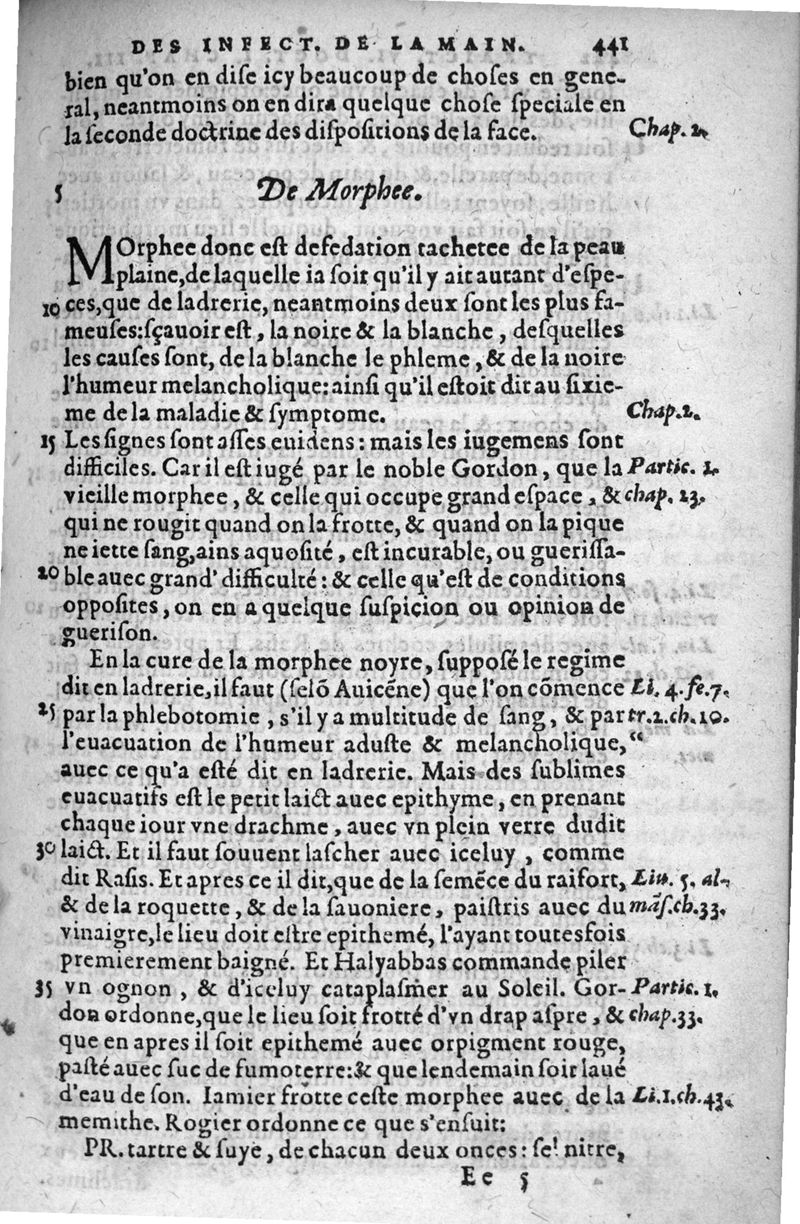 DES INFECT. DE LA MAIN. 441
bien qu'on en diſe icy beaucoup de choſes en gene-
ral, neantmoins on en dira quelque choſe ſpeciale en
la ſeconde doctrine des diſpoſitions de la face. Chap. 2.
5 De Morphee.
MOrphee donc eſt defedation tachetee de la peau
plaine, de laquelle ia ſoit qu'il y ait autant d'eſpe-
10 ces, que de ladrerie, neantmoins deux ſont les plus fa-
meuſes: ſçauoir eſt, la noire & la blanche, deſquelles
les cauſes ſont, de la blanche le phleme, & de la noire
l'humeur melancholique: ainſi qu'il eſtoit dit au ſixie-
me de la maladie & ſymptome. Chap. 2.
15 Les ſignes ſont aſſes euidens: mais les iugemens ſont
difficiles. Car il eſt iugé par le noble Gordon, que la Partic. 1.
vieille morphee, & celle qui occupe grand eſpace, & chap. 23.
qui ne rougit quand on la frotte, & quand on la pique
ne iette ſang, ains aquoſité, eſt incurable, ou gueriſſa-
20 ble auec grand' difficulté: & celle qu'eſt de conditions
oppoſites, on en a quelque ſuſpicion ou opinion de
gueriſon.
En la cure de la morphee noyre, ſuppoſé le regime
dit en ladrerie, il faut (ſelō Auicēne) que l'on cōmence Li. 4. fe. 7.
25 par la phlebotomie, s'il y a multitude de ſang, & par tr. 2. ch. 10.
l'euacuation de l'humeur aduſte & melancholique, “
auec ce qu'a eſté dit en ladrerie. Mais des ſublimes
euacuatifs eſt le petit laict auec epithyme, en prenant
chaque iour vne drachme, auec vn plein verre dudit
30 laict. Et il faut ſouuent laſcher auec iceluy, comme
dit Raſis. Et apres ce il dit, que de la ſemēce du raifort, Liu. 5. al-
& de la roquette, & de la ſauoniere, paiſtris auec du māſ. ch. 33.
vinaigre, le lieu doit eſtre epithemé, l'ayant toutesfois
premierement baigné. Et Halyabbas commande piler
35 vn ognon, & d'iceluy cataplaſmer au Soleil. Gor- Partic. 1.
don ordonne, que le lieu ſoit frotté d'vn drap aſpre, & chap. 33.
que en apres il ſoit epithemé auec orpigment rouge,
paſté auec ſuc de fumoterre: & que lendemain ſoit laué
d'eau de ſon. Iamier frotte ceſte morphee auec de la Li. 1. ch. 43.
memithe. Rogier ordonne ce que s'enſuit:
PR. tartre & ſuye, de chacun deux onces: ſel nitre,
Ee 5